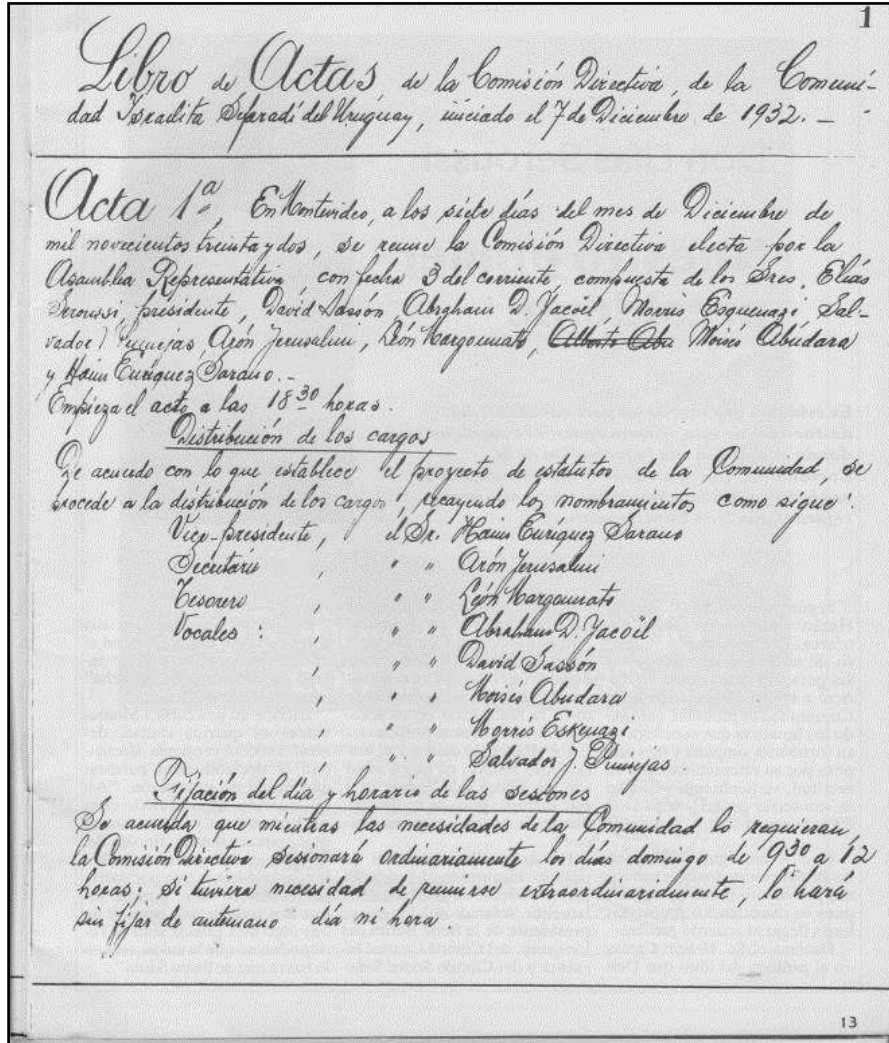 1
Libro de Actas, de la Comisión Directiva, de la Comuni-
dad Israelita Sefaradí del Uruguay, iniciado el 7 de Diciembre de 1932. —
Acta 1ª, En Montevideo, a los siete días del mes de Diciembre de
mil novecientos treinta y dos, se reune la Comisión Directiva electa por la
Asamblea Representativa, con fecha 3 del corriente, compuesta de los Sres, Elías
presidente, David Sassón, Abraham D. Yacöil, Morris Esquenazi Sal-
vador J. Arón Jerusalmi, León Moisés Abúdara
y Haim Enríquez Sarano. -
Empieza el acto a las 18 30 horas.
Distribución de los cargos
De acuerdo con lo que establece el proyecto de estatutos de la Comunidad, se
procede a la distribución de los cargos, recayendo los nombramientos como sigue:
Vice-presidente, el Sr. Haim Enríquez Sarano
Secretario , " " Arón Jerusalmi
Tesorero , " " León
Vocales : , " " Abraham D. Yacöil
, " " David Sassón
, " " Moisés Abudara
, " " Morris Eskenazi
, " " Salvador J.
Fijación del día y horario de las sesiones
Se acuerda que mientras las necesidades de la Comunidad lo requieran,
la Comisión Directiva sesionará ordinariamente los días domingo de 9 30 a 12
horas; si tuviera necesidad de reunirse extraordinariamente, lo hará
sin fijar de antemano día ni hora
13